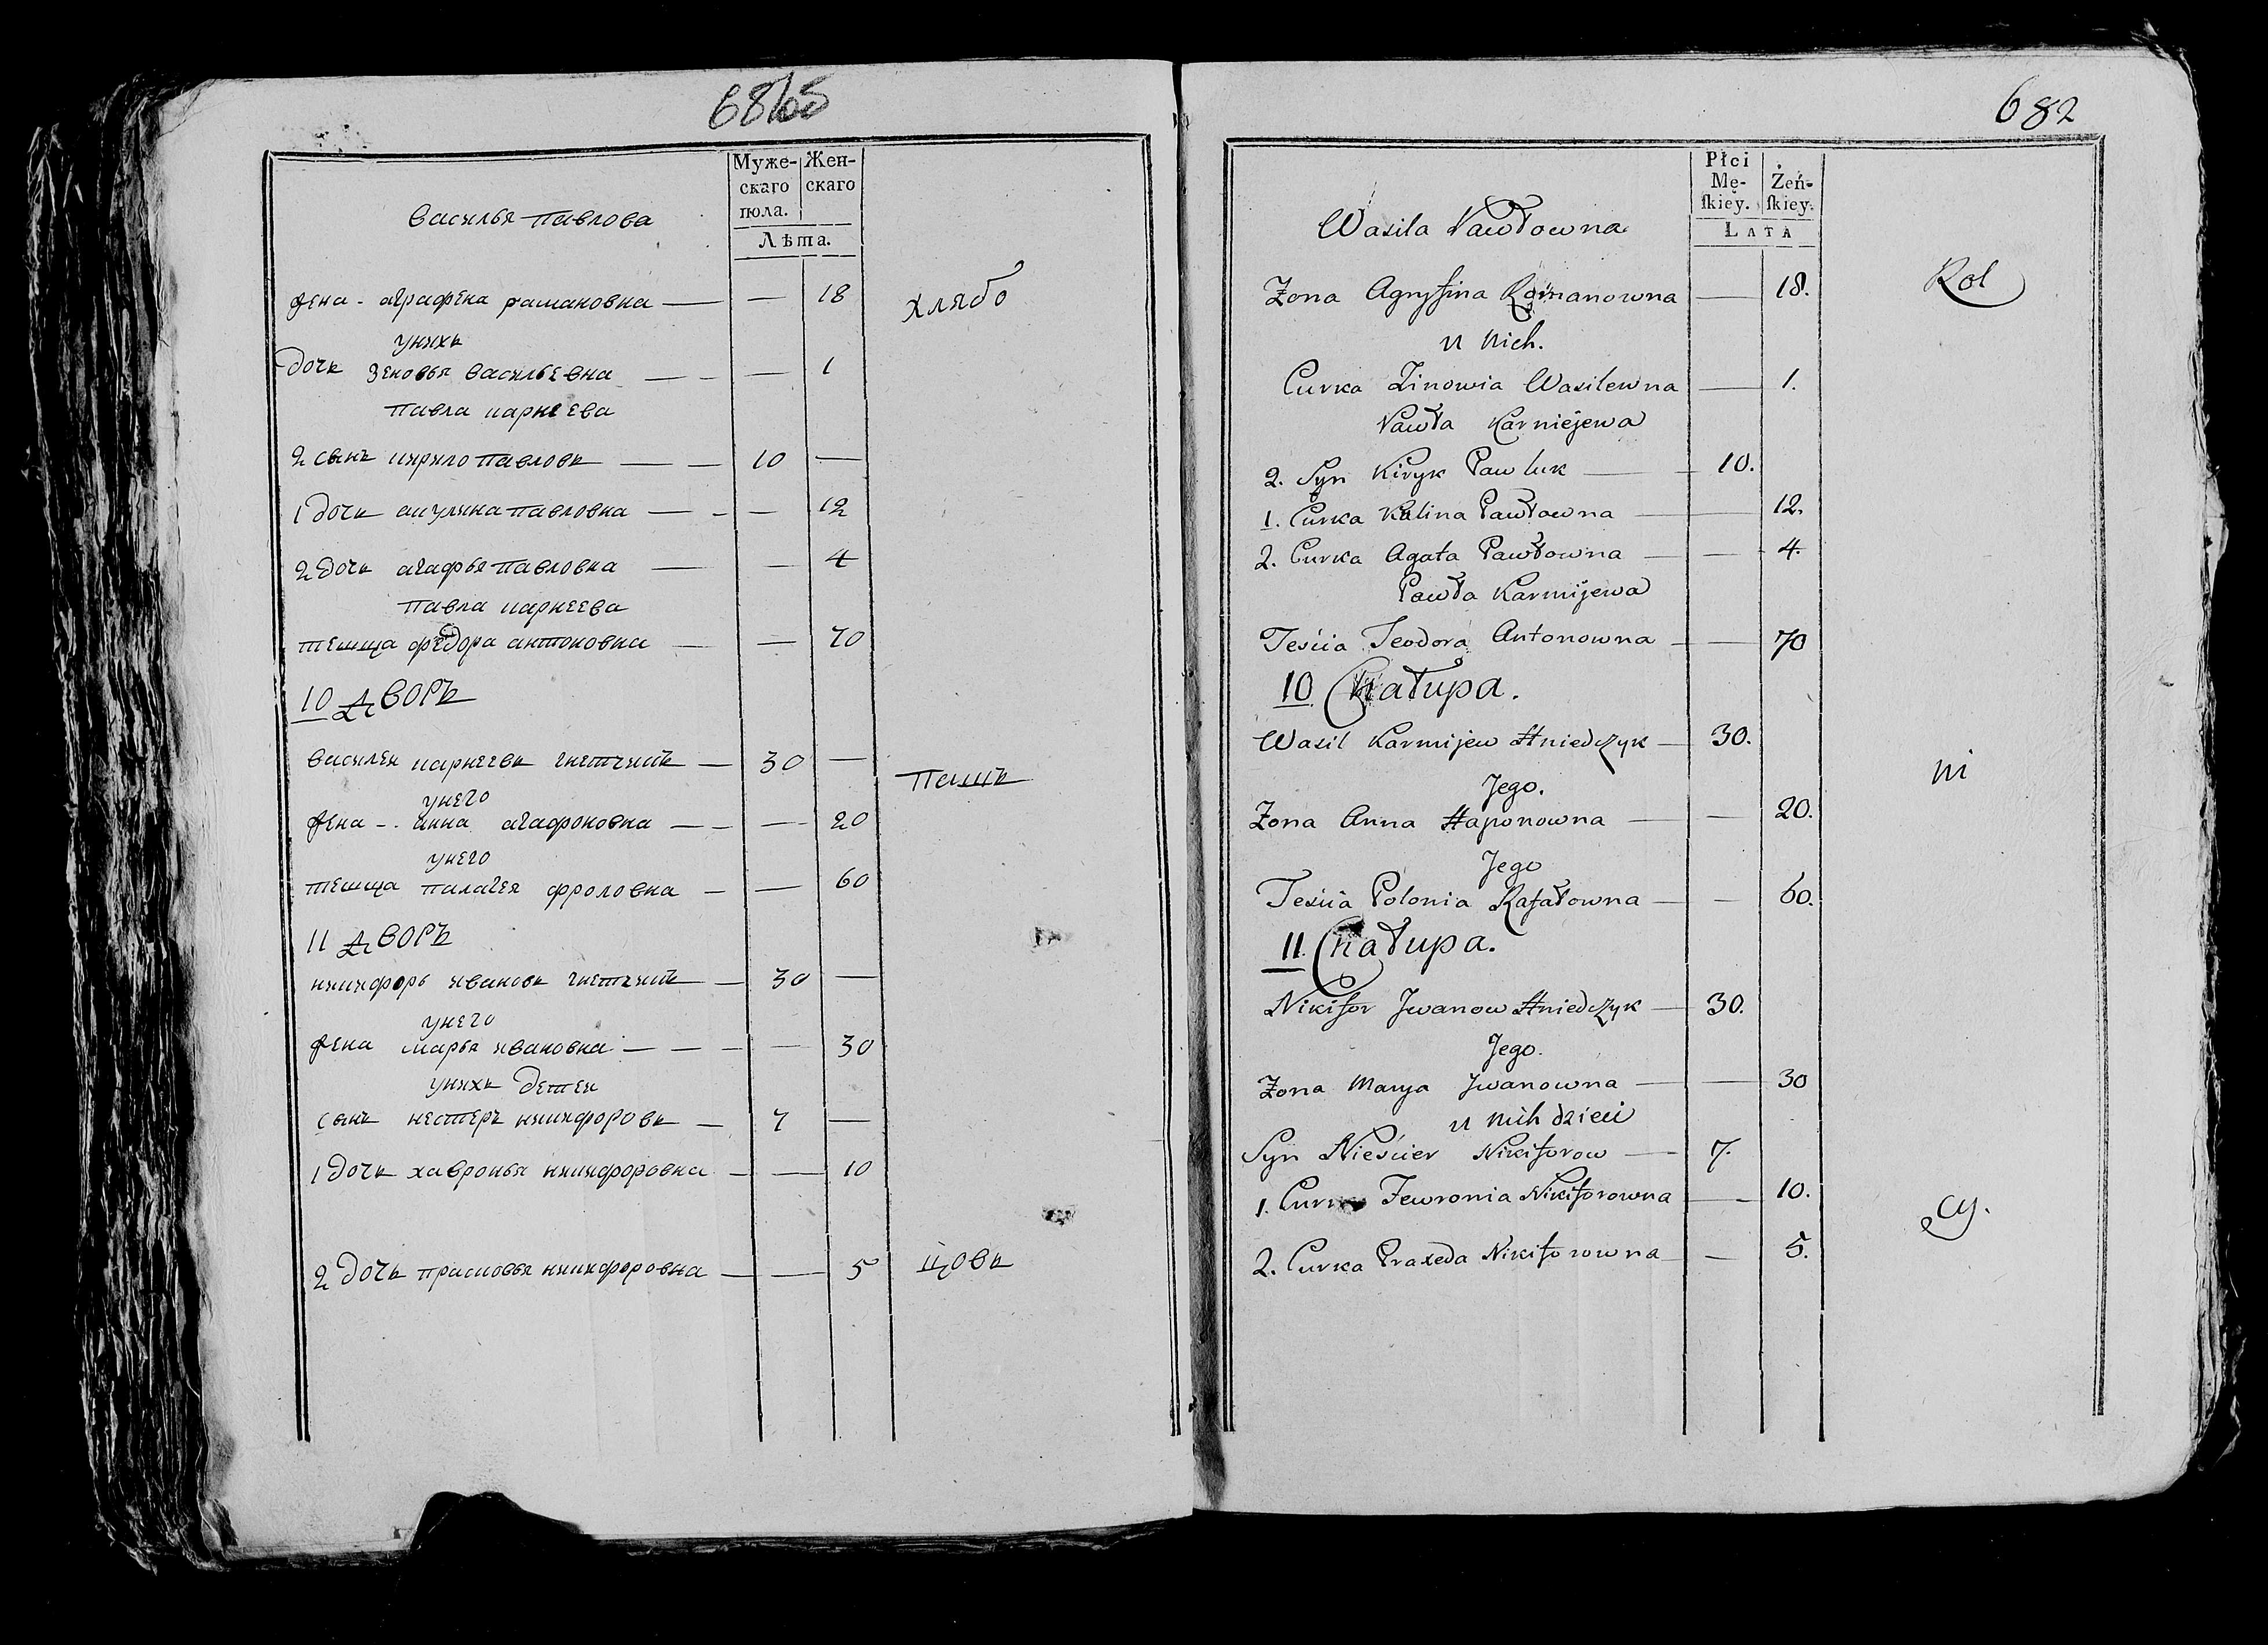 Муже-
скаго
пола.
Жен-
скаго
Лѣта.
василья павлова
жена - аграфена рамановка — — 18
хлябо
унихъ
дочь зеновья васильевна — — 1
павла карнеева
2 сынъ кирило павловъ — 10 —
1 дочь акулина павловна — — 12
2 дочь агафья павловна — — 4
павла карнеева
тешща федора антоновна — — 70
10 дворъ
василеи карнеевъ гнетчикъ — 30 —
пашъ
унего
жена - анна агафоновна — — 20
унего
тешща палагея фроловна — — 60
11 дворъ
никифоръ ивановъ гнетчикъ — 30 —
унего
жена марья ивановна — — 30
унихъ детеи
сынъ нестеръ никифоровъ — 7 —
1 дочь хавронья никифоровна — — 10
2 дочь прасковья никифоровна — — 5
цовъ
682
Płci
Mę-
skiey.
Żeń-
skiey.
LATA
Wasila Pawłowna
Żona Agryfina Romanowna — 18.
Rol
u nich.
Curka Zinowia Wasilewna — 1.
Pawła Karniejewa
2. Syn Kiryk Pawluk — 10.
1. Curka Kalina Pawłowna — 12.
2. Curka Agata Pawłowna — — 4.
Pawła Karmijewa
Teścia Teodora Antonowna — 70
10 Chałupa.
Wasil Karmijew Hniedczyk — 30.
ni
Jego.
Żona Anna Haponowna — — 20.
Jego
Teścia Polonia Rafałowna — — 60.
11. Chałupa.
Nikifor Jwanow Hniedczyk — 30.
Jego.
Żona Marya Jwanowna — — 30
u nich dzieci
Syn Nieścier Nikiforow — 7.
1. Curka Fewronia Nikiforowna — 10.
cy.
2. Curka Praxeda Nikiforowna — 5.